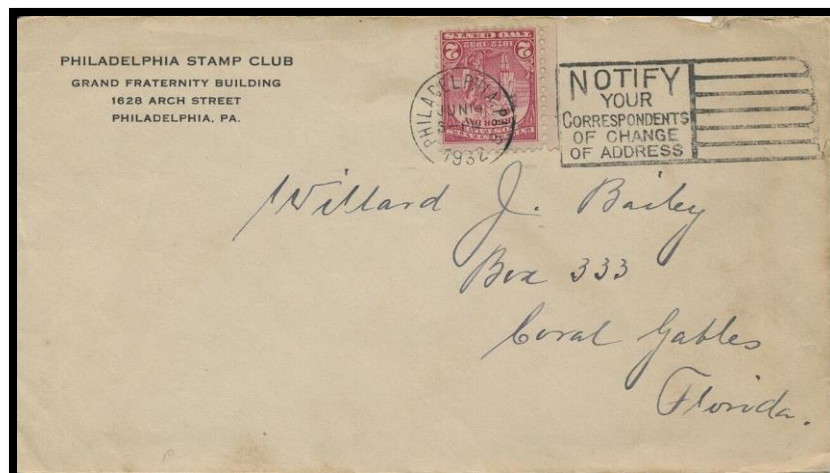 PHILADELPHIA STAMP CLUB
GRAND FRATERNITY BUILDING
1628 ARCH STREET
PHILADELPHIA, PA.
TWO CENTS
2 1872-1932 2
PHILADELPHIA, P
JUN
1932
NOTIFY
YOUR
CORRESPONDENTS
OF CHANGE
OF ADDRESS
Willard J. Bailey
Box 333
Coral Gables
Florida.